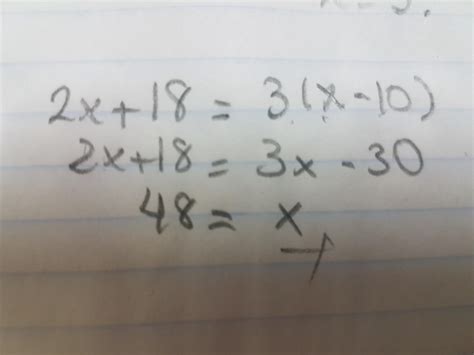 2x+18 = 3(x-10)
2x+18 = 3x-30
48 = x